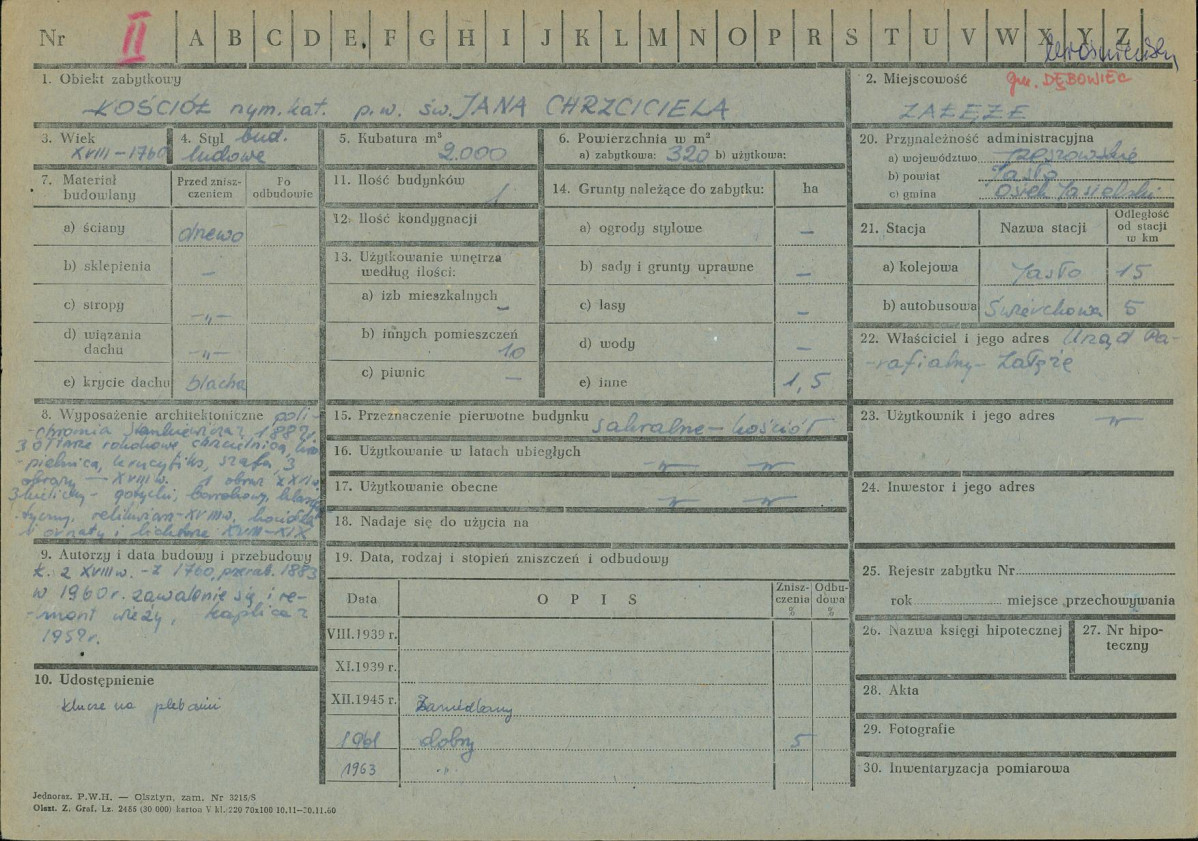 Nr II A B C D E F G H I J K L M N O P R S T U V W X Y Z
krośnieńskie
1. Obiekt zabytkowy
KOŚCIÓŁ rzym. kat. p.w. św. JANA CHRZCICIELA
2. Miejscowość gm. DĘBOWIEC
ZAŁĘŻE
3. Wiek
XVIII – 1760
4. Styl bud.
ludowe
5. Kubatura m³
2.000
6. Powierzchnia w m²
a) zabytkowa: 320 b) użytkowa:
7. Materiał budowlany
Przed zniszczeniem
Po odbudowie
a) ściany drewo
b) sklepienia –
c) stropy –„–
d) wiązania dachu –„–
e) krycie dachu blacha
8. Wyposażenie architektoniczne poli-
chromia Stankiewicza z 1887,
3 ołtarze rokokowe chrzcielnica, kro-
pielnica, krucyfiks, szafa, 3
obrazy – XVIII w. 1 obraz z XVI w.
3 kielichy – gotycki, barokowy, klasy-
tyczny, relikwiarz – XVIII w.
ornaty i lichtarze XVIII–XIX
9. Autorzy i data budowy i przebudowy
k. z XVIII w. – z 1760, przerab. 1883
w 1960 r. zawalenie się i re-
-mont wieży, kaplica z
1959 r.
10. Udostępnienie
klucze na plebanii
11. Ilość budynków
1
12. Ilość kondygnacji
13. Użytkowanie wnętrza
według ilości:
a) izb mieszkalnych –
b) innych pomieszczeń
10
c) piwnic –
14. Grunty należące do zabytku: ha
a) ogrody stylowe –
b) sady i grunty uprawne –
c) lasy –
d) wody –
e) inne 1,5
15. Przeznaczenie pierwotne budynku sakralne – kościół
16. Użytkowanie w latach ubiegłych –„– –„–
17. Użytkowanie obecne –„– –„–
18. Nadaje się do użycia na
19. Data, rodzaj i stopień zniszczeń i odbudowy
Data OPIS Zniszczenia % Odbudowa %
VIII.1939 r.
XI.1939 r.
XII.1945 r. Zaniedbany
1961 dobry 5
1963 „
20. Przynależność administracyjna
a) województwo rzeszowskie
b) powiat Jasło
c) gmina Osiek Jasielski
21. Stacja Nazwa stacji Odległość od stacji w km
a) kolejowa Jasło 15
b) autobusowa Świerchowa 5
22. Właściciel i jego adres Urząd Pa-
-rafialny – Załęże
23. Użytkownik i jego adres –„–
24. Inwestor i jego adres
25. Rejestr zabytku Nr
rok miejsce przechowywania
26. Nazwa księgi hipotecznej
27. Nr hipoteczny
28. Akta
29. Fotografie
30. Inwentaryzacja pomiarowa
Jednoraz. P.W.H. — Olsztyn, zam. Nr 3215/S
Olszt. Z. Graf. Lz. 2485 (30 000) karton V kl. 220 70x100 10.11—20.11.60